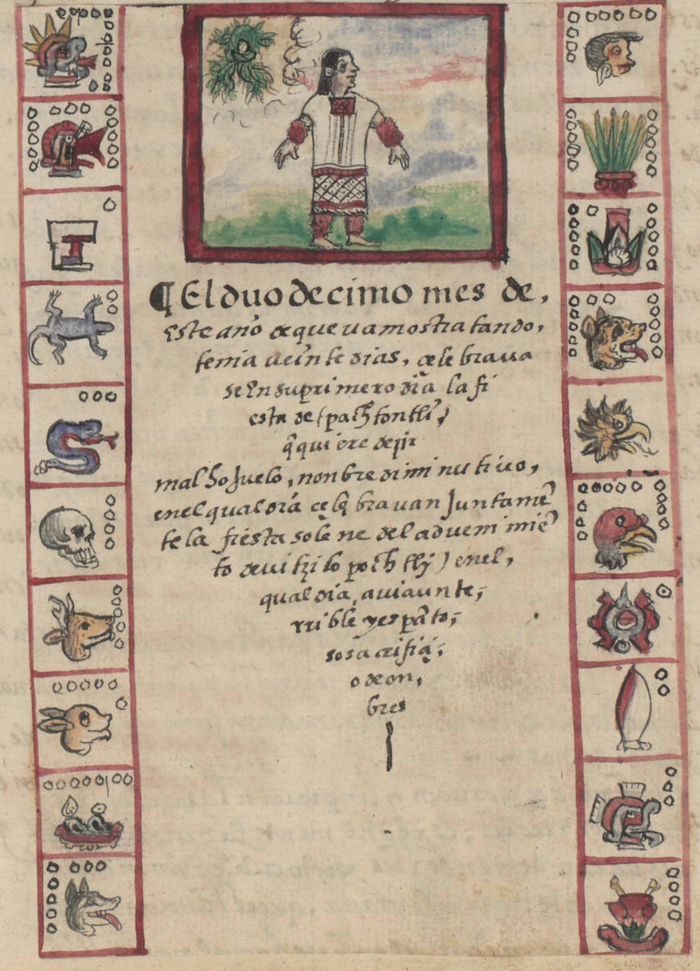 ¶ El duodecimo mes de,
este año de que vamos tratando,
tenia veinte dias, celebrava
se En su primero dia la fi
esta de (pachtontli)
q̃ quiere dezir
mal hojuelo, nonbre diminutivo,
en el qual dia celebravan Juntamẽ
te la fiesta solẽne del advenimiẽ
to de vitzilopochtli) en el,
qual dia, avia un te,
rrible y espãto,
so sacrifiçi,
o de on,
bres